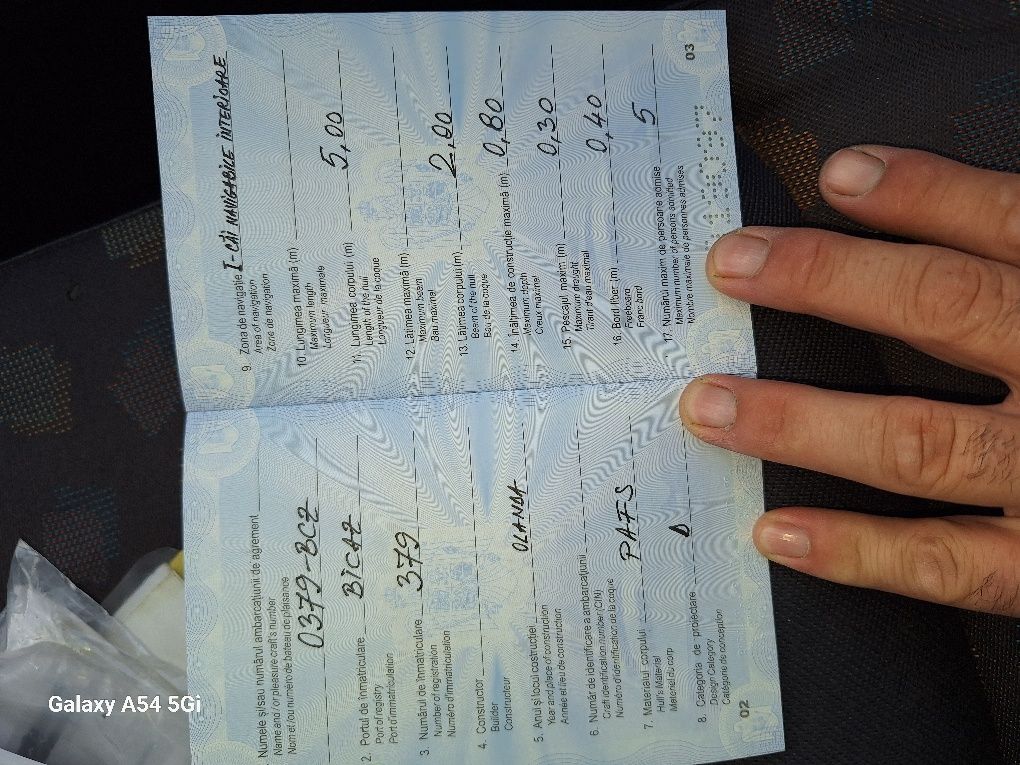 Numele și/sau numărul ambarcațiunii de agrement
Name and / or pleasure craft's number
Nom et /ou numéro de bateau de plaisance
0379-BCZ
2. Portul de înmatriculare BICAZ
Port of registry
Port d'immatriculation
3. Numărul de înmatriculare 379
Number of registration
Numéro d'immatriculation
4. Constructor
Builder
Constructeur
5. Anul și locul construcției OLANDA
Year and place of construction
Année et lieu de construction
6. Număr de identificare a ambarcațiunii
Craft identification number (CIN)
Numéro d'identification de la coque
7. Materialul corpului PAFS
Hull's Material
Matériel du corp
8. Categoria de proiectare D
Design Category
Catégorie de conception
02
9. Zona de navigație I-CĂI NAVIGABILE INTERIOARE
Area of navigation
Zone de navigation
10. Lungimea maximă (m)
Maximum length
Longueur maximale
11. Lungimea corpului (m) 5,00
Length of the hull
Longueur de la coque
12. Lățimea maximă (m)
Maximum beam
Bau maximal
13. Lățimea corpului (m) 2,00
Beam of the hull
Bau de la coque
14. Înălțimea de construcție maximă (m) 0,80
Maximum depth
Creux maximal
15. Pescajul maxim (m) 0,30
Maximum draught
Tirant d'eau maximal
16. Bord liber (m) 0,40
Freeboard
Franc bord
17. Numărul maxim de persoane admise 5
Maximum number of persons admitted
Nombre maximale de personnes admises
03
Galaxy A54 5Gi